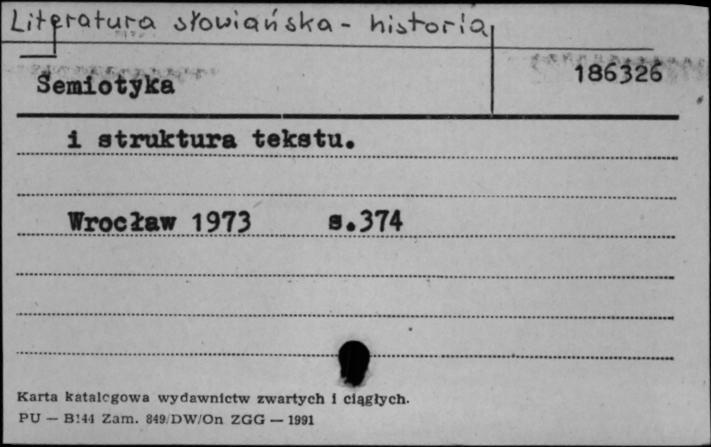 Literatura słowiańska - historia
Semiotyka 186326
i struktura tekstu.
Wrocław 1973 s.374
Karta katalogowa wydawnictw zwartych i ciągłych.
PU — B144 Zam. 849/DW/On ZGG — 1991